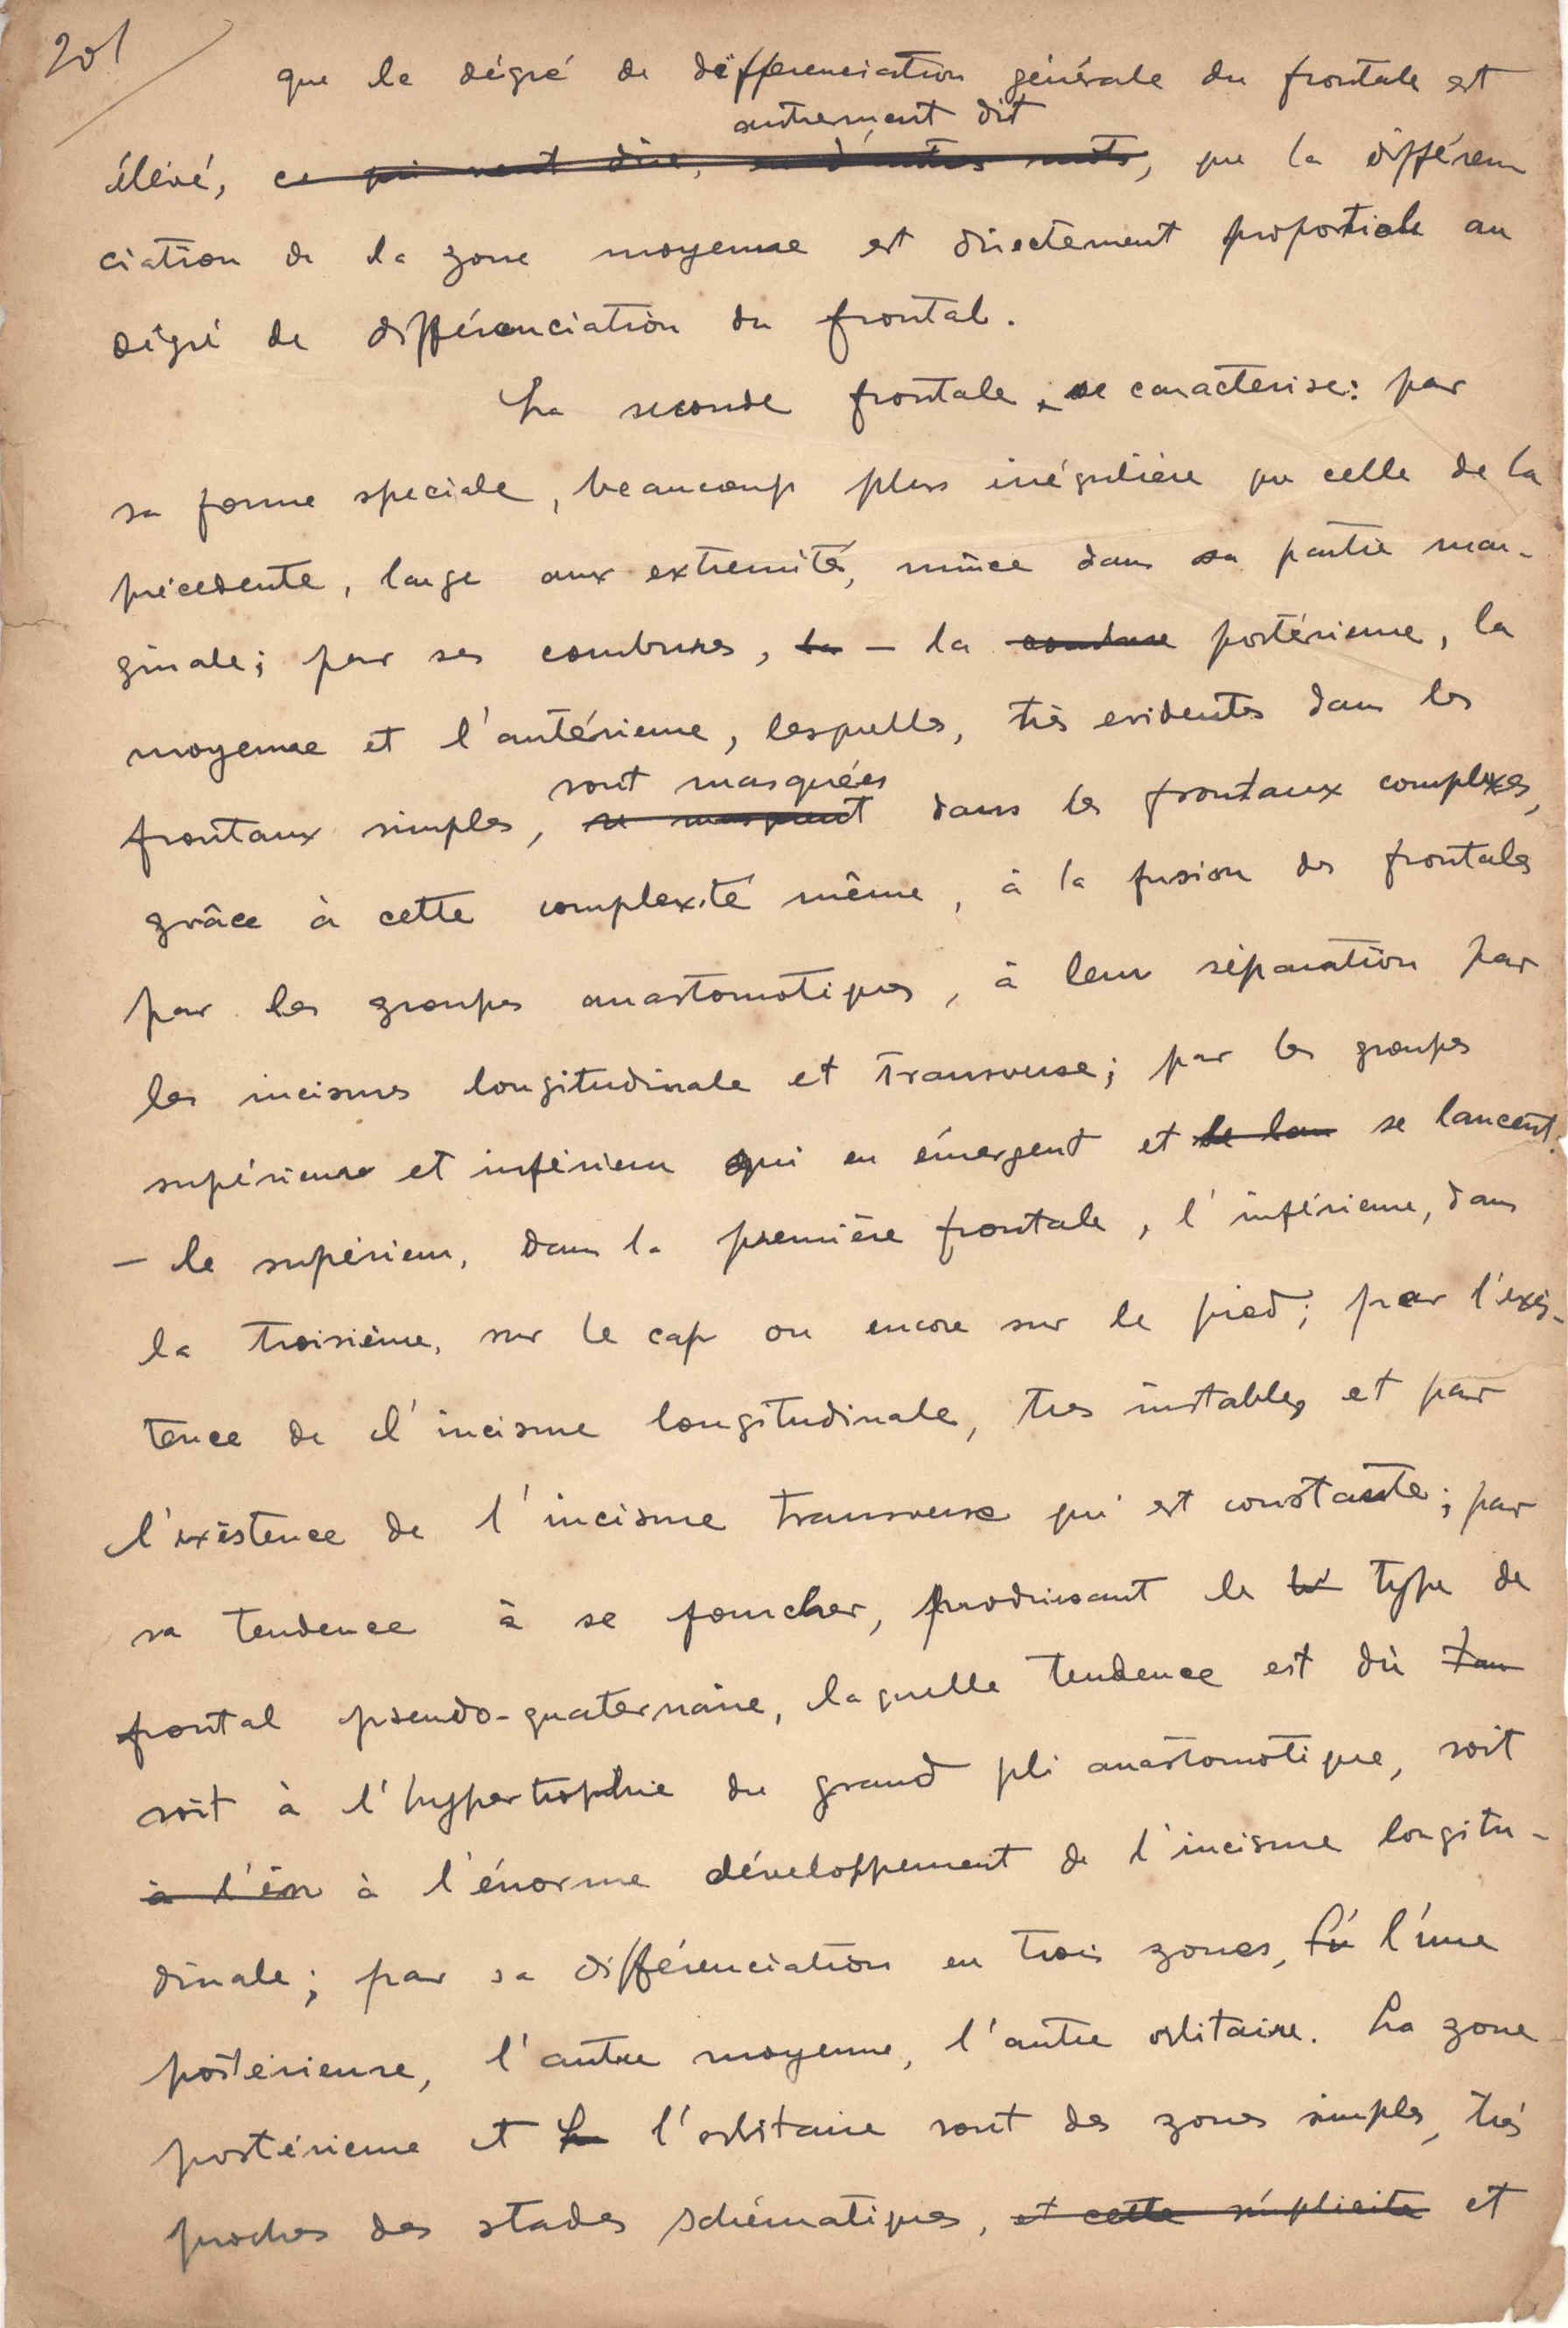 201
que le dégré de différenciation générale du frontale est
autrement dit
élévé, ce qui veut dire, en d'autres mots, que la différen
ciation de la zone moyenne est directement proportiale au
dégré de différenciation du frontal.
La seconde frontale, se caracterise: par
sa forme speciale, beaucoup plus iréguliére que celle de la
précedente, large aux extremités, mince dans sa partie mar-
ginale; par ses courbures, la – la courbure postérieure, la
moyenne et l'antérieure, lesquelles, très evidentes dans les
sont masquées
frontaux simples, se masquent dans les frontaux complexes,
grâce à cette complexité même, à la fusion des frontales
par les groupes anastomotiques, à leur séparation par
les incisures longitudinale et transverse; par les groupes
supérieure et inférieur qui en émergent et se lan se lancent:
– le supérieur, dans la première frontale, l'inférieure, dans
la troisième, sur le cap ou encore sur le pied; par l'exis-
tence de l'incisure longitudinale, tres instable, et par
l'existence de l'incisure transverse qui est constante; par
sa tendence à se fourcher, produisant le type de
frontal pseudo-quaternaire, laquelle tendence est dù tan
soit à l'hypertrophie du grand pli anastomotique, soit
à l'én à l'énorme développement de l'incisure longitu-
dinale; par sa différenciation en trois zones, l'une
postérieure, l'autre moyenne, l'autre orbitaire. La zone
postérieure et la l'orbitaire sont des zones simples, trés
proches des stades schématiques, et cette simplicite et